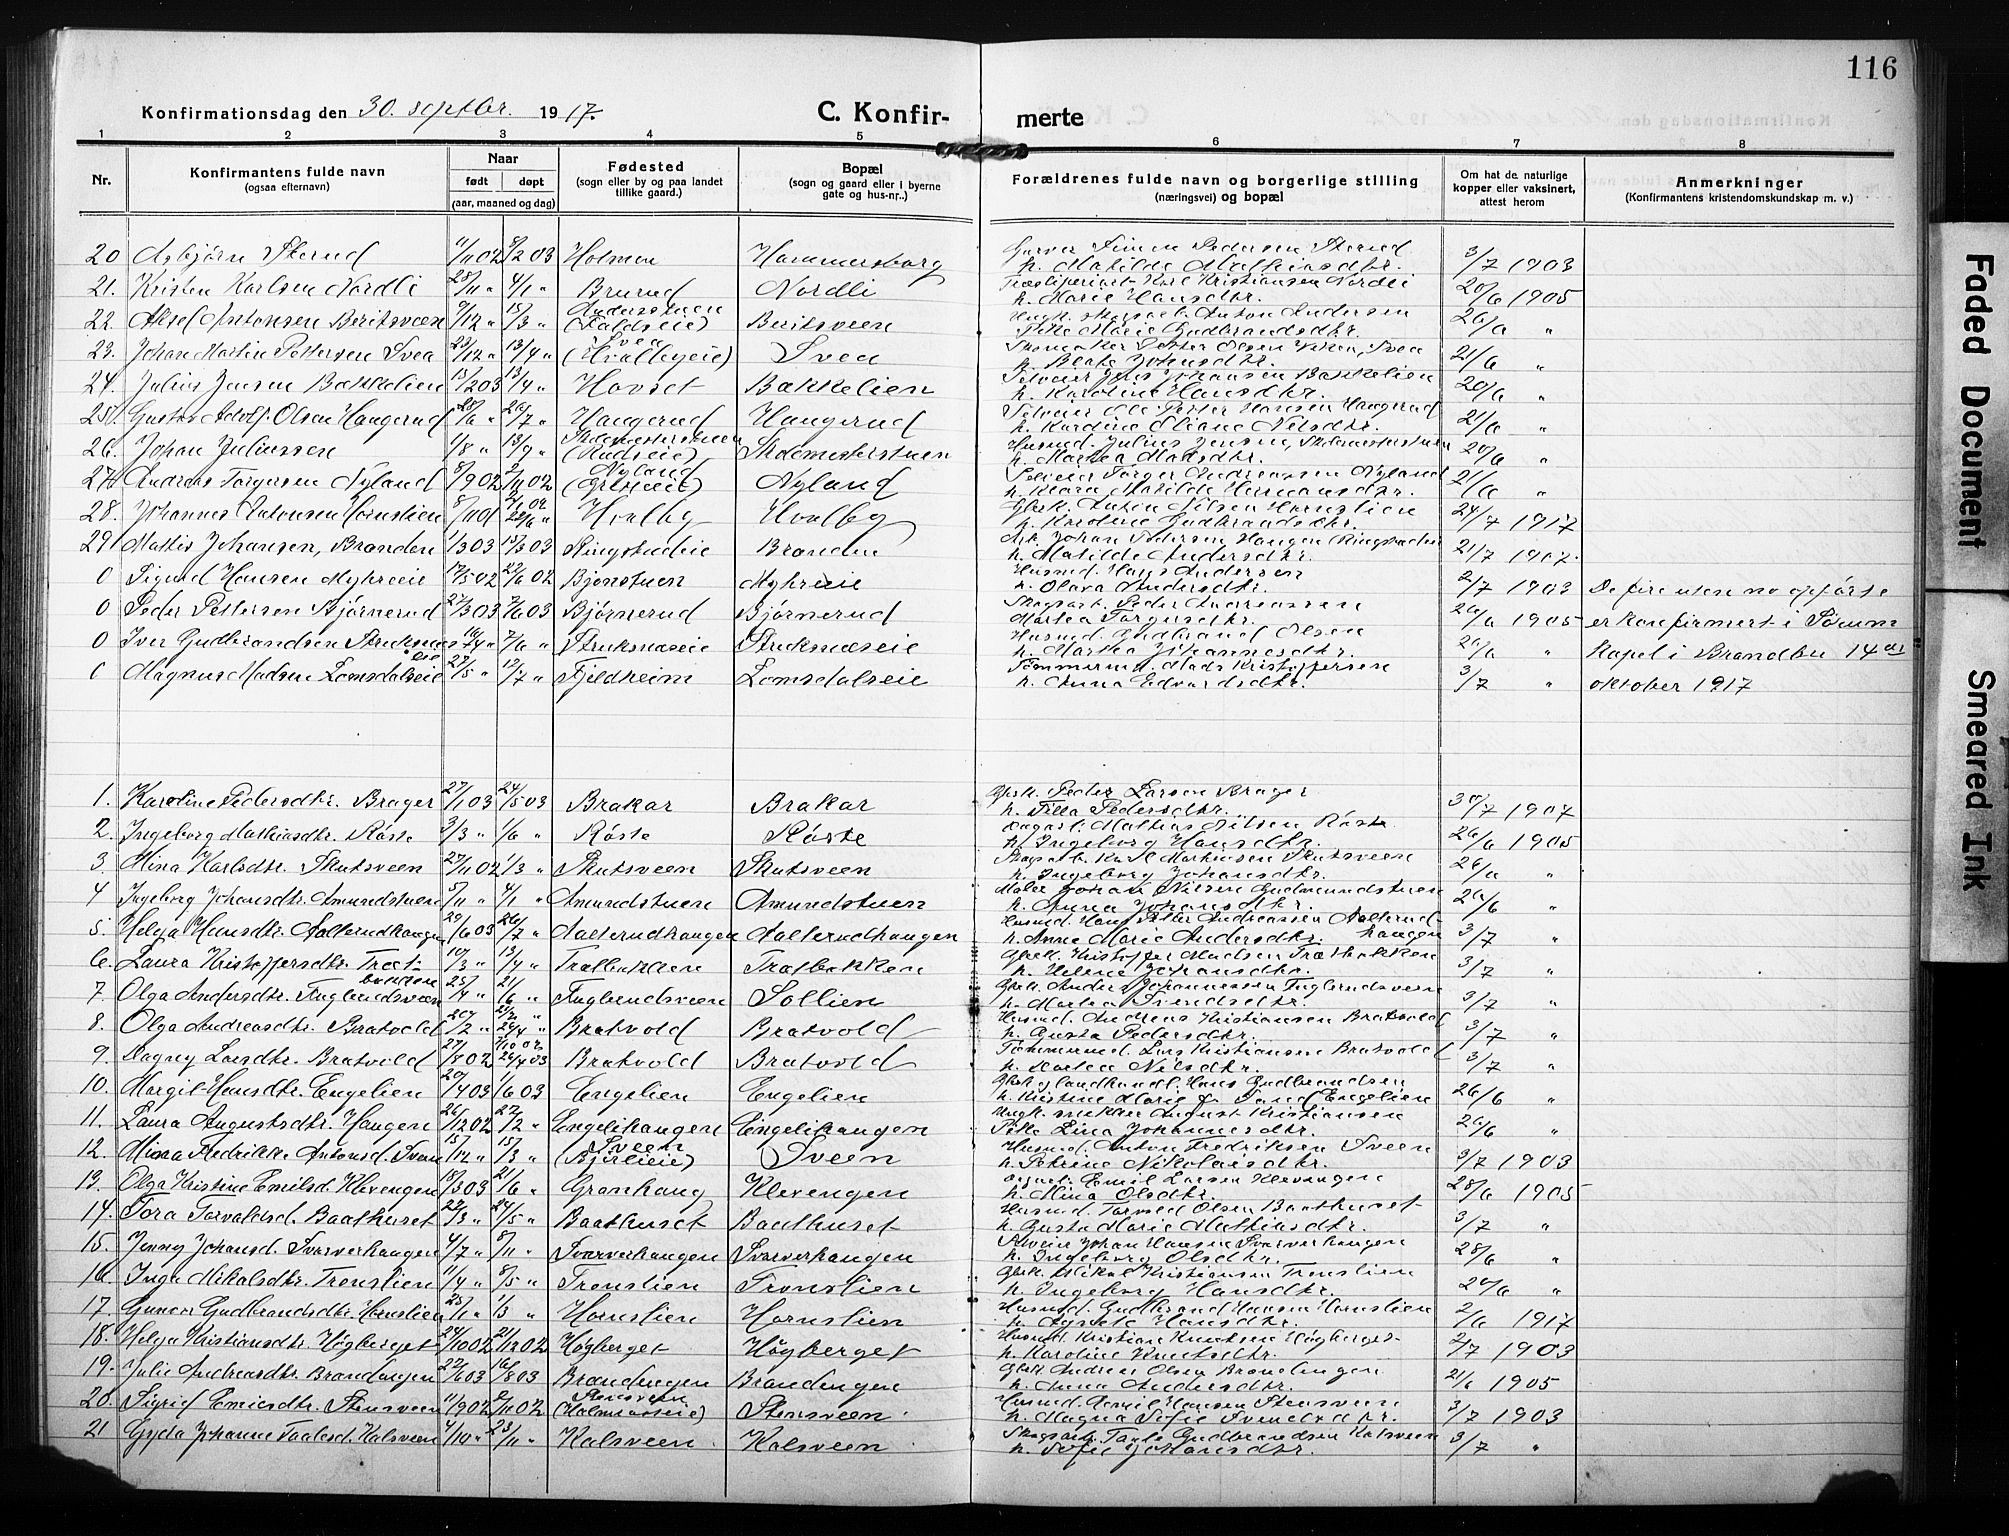 116
Konfirmationsdag den 30. septbr. 1917.
C. Konfirmerte
1 2 3 4 5 6 7 8
Nr.
Konfirmantens fulde navn
(ogsaa efternavn)
Naar
født døpt
(aar, maaned og dag)
Fødested
(sogn eller by og paa landet
tillike gaard.)
Bopæl
(sogn og gaard eller i byerne
gate og hus-nr..)
Forældrenes fulde navn og borgerlige stilling
(næringsvei) og bopæl
Om hat de naturlige
kopper eller vaksinert,
attest herom
Anmerkninger
(Konfirmantens kristendomskundskap m. v.)
20 Asbjørn Skerud 11/11 02 8/2 03 Holmen Hammersborg Simen Pedersen Skerud h. Matilde Mathiasdtr. 3/7 1903
21. Kristen Karlsen Nordli 28/11 " 4/1 " Brurud Nordli Karl Kristiansen Nordli h. Marie Hansdtr. 20/6 1905
22. Aksel Antonsen Beritsveen 9/12 " 15/3 " (Faldseie) Beritsveen Anton Andersen Pike Marie Gudbrandsdtr. 26/6 "
23. Johan Martin Pettersen Svea 23/12 " 13/4 " Svea (Hvalbyeie) Svea Skomaker Petter Olsen Svea h. Beate Johnsdtr. 21/6 "
24. Julius Jensen Bakkelien 15/2 03 13/4 " Hovset Bakkelien Selveier Jens Johansen Bakkelien h. Karoline Hansdtr. 20/6 "
25. Gustav Adolf Olsen Haugerud 28/6 " 26/7 " Haugerud Haugerud Selveier Ole Petter Hansen Haugerud h. Kardine Oliane Nilsdtr. 21/6 "
26. Johan Juliussen 1/8 " 13/9 " Skomesterstuen (Rudseie) Skomesterstuen Husmd. Julius Jensen, Skomesterstuen h. Martea Matsdtr. 20/6 "
27. Andreas Torgersen Nyland 8/9 02 2/11 02 Nyland Nyland Selveier Torger Andreassen Nyland h. Klara Matilde Hermansdtr. 21/6 "
28. Johannes Antonsen Hornslien 8/11 01 Hvalby Hvalby Gbrk. Anton Nilsen Hornslien h. Karoline Gudbrandsdtr. 24/7 1917
29. Mattis Johansen, Branden 1/3 03 15/3 03 Ringstadeie Branden Arb. Johan Pedersen Haugen Ringstadeie h. Matilde Andersdtr. 21/7 1907.
0 Sigurd Hansen Myhreeie 17/5 02 22/6 02 Bjonstuen Myhreeie Husmd. Hans Andersen h. Olava Andersdtr. 2/7 1903 De fire uten no opførte
0 Peder Pettersen Bjørnerud 27/3 03 7/6 03 Bjørnerud Bjørnerud Skogsarb. Peder Andreassen Martea Torgersdtr. 26/6 1905 er konfirmert i Sørum
0 Iver Gudbrandsen Struksnæseie 16/4 " 7/6 " Struksnæseie Struksnæseie Husmd. Gudbrand Olsen h. Martha Johannesdtr. 26/6 " Kapel i Brandbu 14de
0 Magnus Madsen Lomsdalseie 27/5 " 12/7 " Fjeldheim Lomsdalseie Tømmermd. Mads Kristoffersen h. Anna Edvardsdtr. 3/7 " oktober 1917
1. Karoline Pedersdtr. Brager 27/1 03 24/5 03 Brakar Brakar Gbrk. Peder Larsen Brager h. Tilla Pedersdtr. 30/7 1907
2. Ingeborg Mathiasdtr. Røste 3/3 " 1/6 " Røste Røste Dagarb. Mathias Nilsen Røste h. Ingeborg Hansdtr. 26/6 1905
3. Mina Karlsdtr. Skutsveen 27/11 02 1/3 " Skutsveen Skutsveen Skogsarb. Karl Mathiesen Skutsveen h. Ingeborg Johansdtr. 26/6 "
4 Ingeborg Johansdtr. Amundstuen 5/11 " 4/1 " Amundstuen Amundstuen Maler Johan Nilsen Gudmundstuen h. Anna Johansdtr. 26/6 "
5. Helga Hansdtr. Aalterudhaugen 29/6 03 26/7 " Aalterudhaugen Aalterudhaugen Husmd. Hans Petter Andreassen Aalterudhaugen h. Anne Marie Andersdtr. 3/7 "
6. Laura Kristoffersdtr. Trætbakken 10/3 " 13/4 " Trætbakken Trætbakken Gbrk. Kristoffer Madsen Trætbakken h. Helene Johansdtr. 3/7 "
7. Olga Andersdtr. Fuglerudsveen 25/4 " 21/6 " Fuglerudsveen Sollien Gbrk. Anders Johannessen Fuglerudsveen h. Martea Svendsdtr. 3/7 "
8. Olga Andreasdtr. Bratvold 20/2 " 26/4 " Bratvold Bratvold Husmd. Andreas Kristiansen Bratvold h. Gusta Pedersdtr. 3/7 "
9. Dagny Larsdtr. Bratvold 27/8 02 26/4 03 Bratvold Bratvold Tømmermd. Lars Kristiansen Bratvold h. Martea Nilsdtr. 3/7 "
10. Margit Hansdtr. Engelien 20/4 03 1/6 03 Engelien Engelien Gbrk. og landhandl. Hans Gudbrandsen h. Kristine Marie Engelien 26/6 "
11. Laura Augustsdtr. Haugen 26/12 02 22/2 " Engelihaugen Engelihaugen August Kristiansen Pike Lina Johannesdtr. 26/6 "
12. Mina Fredrikke Antonsd. Sveen 15/12 " 15/3 " Sveen (Bjørlieie) Sveen Husmd. Anton Fredriksen Sveen h. Petrine Nikolaisdtr. 3/7 1903
13. Olga Kristine Emilsd. Klevengen 18/3 03 21/6 " Granhaug Klevengen Emil Larsen Klevengen h. Mina Olsdtr. 28/6 1905
14. Tora Torvaldsd. Baathuset 22/3 " 24/5 " Baathuset Baathuset Husmd. Torvald Olsen Baathuset h. Gusta Marie Mathiasdtr. 3/7 "
15. Jenny Johansd. Svarverhaugen 4/7 " 8/11 " Svarverhaugen Svarverhaugen Johan Hansen Svarverhaugen h. Ingeborg Olsdtr. 28/6 "
16. Inga Mikalsdtr. Tronslien 11/4 " 8/5 " Tronslien Tronslien Gbrk. Mikal Kristiansen Tronslien h. Ingeborg Hansdtr. 20/6 "
17. Gunvor Gudbrandsdtr. Hornslien 25/1 " 1/3 " Hornslien Hornslien Husmd. Gudbrand Hansen Hornslien h. Agnete Hansdtr. 2/6 1917
18. Helga Kristiansdtr. Høgberget 24/10 02 21/12 02 Høgberget Høgberget Husmd. Kristian Knutsen Høgberget h. Karoline Knutsdtr. 2/7 1903
19. Julie Andreasdtr. Brandengen 22/6 03 16/8 03 Brandengen Brandengen Gbrk. Andreas Olsen Brandengen h. Anna Andersdtr. 21/6 1905
20. Sigrid Emilsdtr. Stensveen 11/9 02 2/11 02 Stensveen Stensveen Husmd. Emil Hansen Stensveen h. Magna Sofie Svendsdtr. 3/7 1903
21 Gyda Johanne Taalesd. Kalsveen 4/10 " 23/11 " Kalsveen Kalsveen Skogsarb. Taale Gudbrandsen Kalsveen h. Sofie Johansdtr. 3/7 "
Faded Document
Smeared Ink